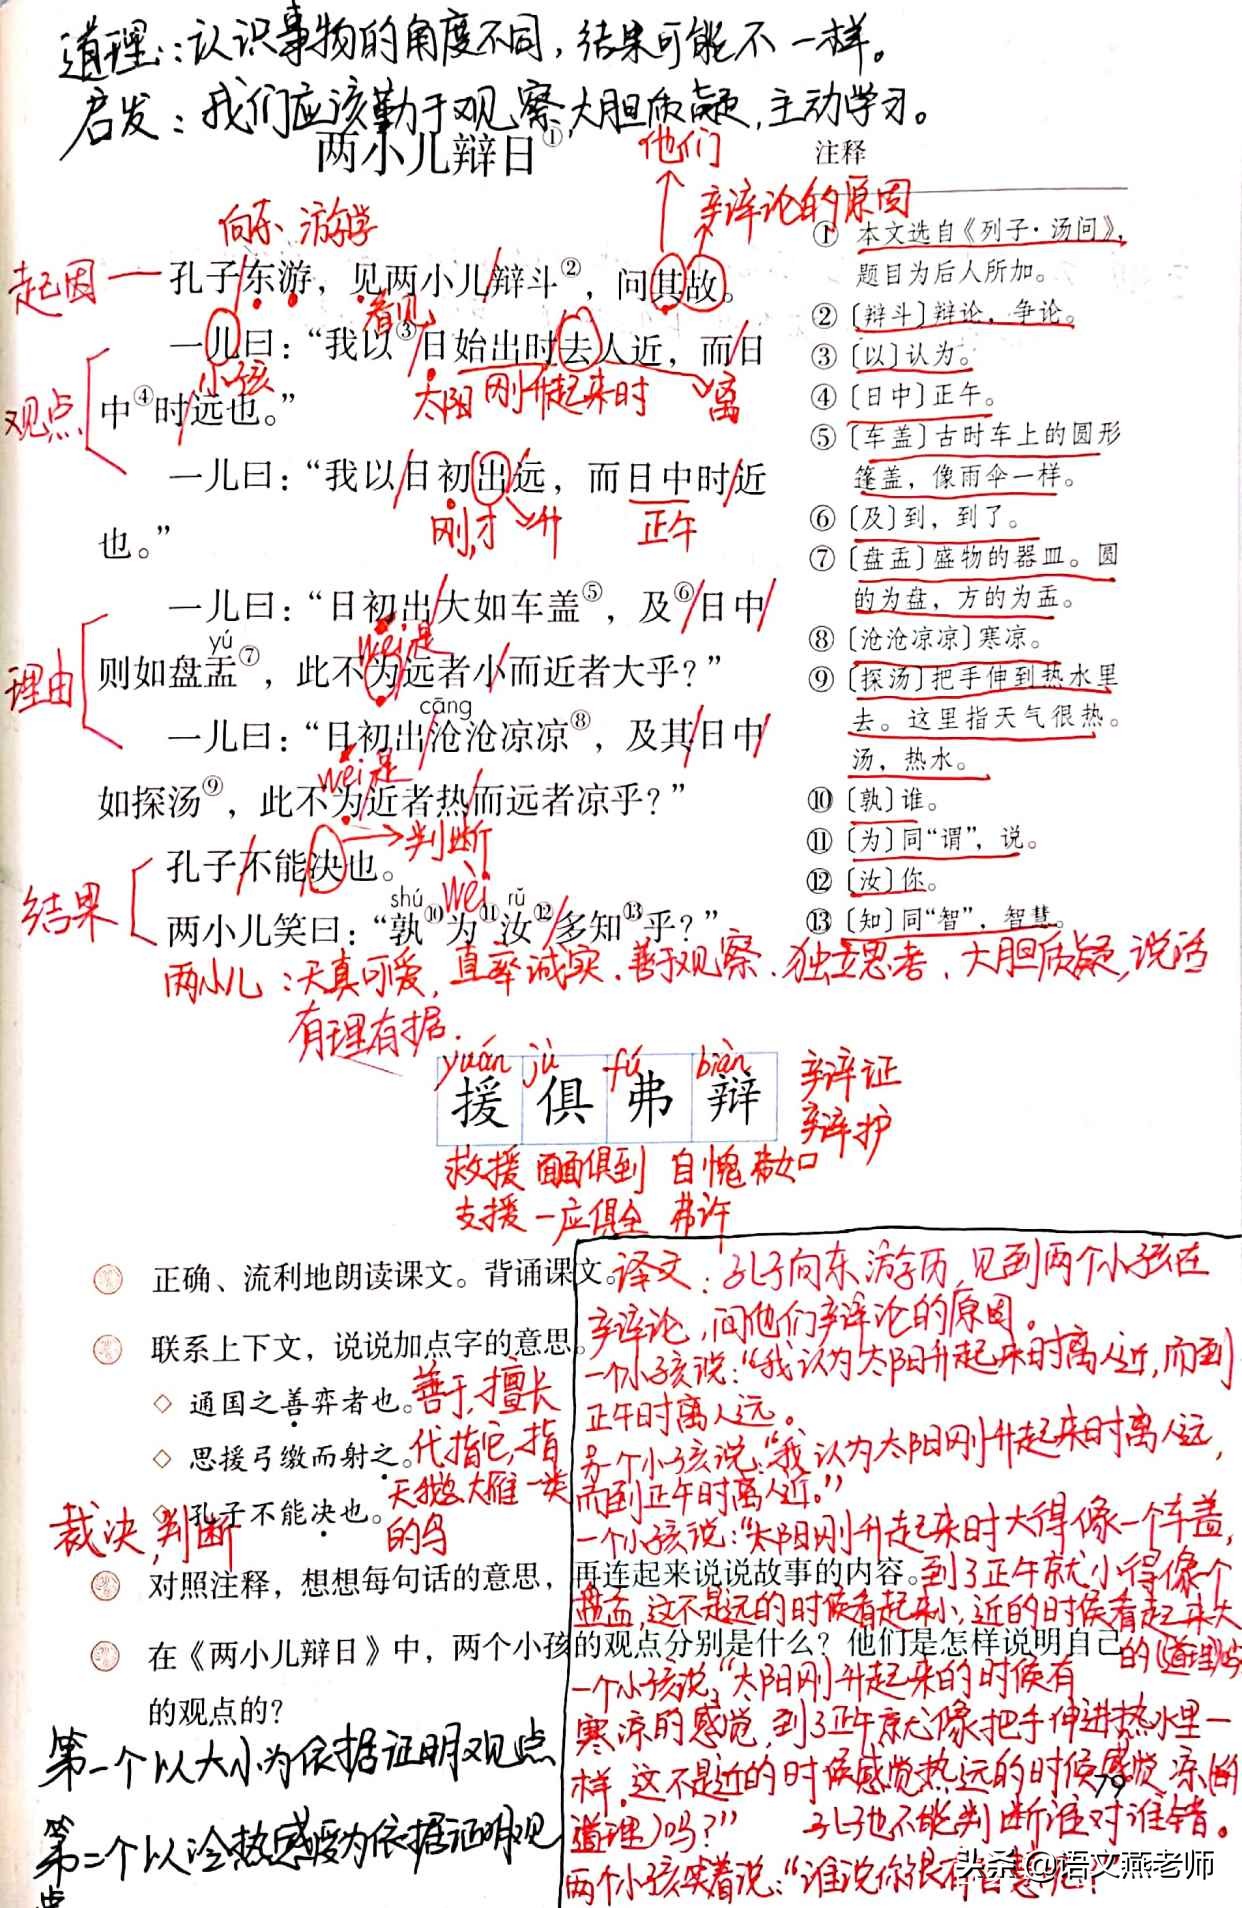 道理：认识事物的角度不同，结果可能不一样。
启发：我们应该勤于观察大胆质疑，主动学习。
两小儿辩日①
他们
辩论的原因
向东 游学
起因
孔子东游，见两小儿辩斗②，问其故。
看见
一儿曰：“我以③日始出时去人近，而日
小孩
太阳 刚升起来时 离
观点
中④时远也。”
一儿曰：“我以日初出远，而日中时近
刚,才 升 正午
也。”
一儿曰：“日初出大如车盖⑤，及⑥日中
yú
wéi是
理由
则如盘盂⑦，此不为远者小而近者大乎？”
cāng
一儿曰：“日初出沧沧凉凉⑧，及其日中
wéi是
如探汤⑨，此不为近者热而远者凉乎？”
判断
孔子不能决也。
结果
shú wèi rǔ
两小儿笑曰：“孰⑩为⑪汝⑫多知⑬乎？”
注释
① 本文选自《列子·汤问》，
题目为后人所加。
② 〔辩斗〕辩论，争论。
③ 〔以〕认为。
④ 〔日中〕正午。
⑤ 〔车盖〕古时车上的圆形
篷盖，像雨伞一样。
⑥ 〔及〕到，到了。
⑦ 〔盘盂〕盛物的器皿。圆
的为盘，方的为盂。
⑧ 〔沧沧凉凉〕寒凉。
⑨ 〔探汤〕把手伸到热水里
去。这里指天气很热。
汤，热水。
⑩ 〔孰〕谁。
⑪ 〔为〕同“谓”，说。
⑫ 〔汝〕你。
⑬ 〔知〕同“智”，智慧。
两小儿：天真可爱，直率诚实．善于观察．独立思考．大胆质疑，说话
有理有据．
yuán jù fú biàn
援 俱 弗 辩
辩证
辩护
救援 面面俱到 自愧弗如
支援 一应俱全 弗许
正确、流利地朗读课文。背诵课文。
联系上下文，说说加点字的意思。
◇ 通国之善弈者也。
善于，擅长
◇ 思援弓缴而射之。
代指它，指
天鹅大雁一类
的鸟
◇ 孔子不能决也。
裁决，判断
对照注释，想想每句话的意思，再连起来说说故事的内容。
在《两小儿辩日》中，两个小孩的观点分别是什么？他们是怎样说明自己
的观点的？
第一个以大小为依据证明观点
第二个以冷热感受为依据证明观
点
译文：孔子向东游历，见到两个小孩在
辩论，问他们辩论的原因。
一个小孩说：“我认为太阳升起来时离人近，而到
正午时离人远。
另一个小孩说：“我认为太阳刚升起来时离人远，
而到正午时离人近。”
一个小孩说：“太阳刚升起来时大得像一个车盖，
到了正午就小得像个
盘盂，这不是远的时候看起来小，近的时候看起来大
的(道理)吗
一个小孩说，“太阳刚升起来的时候有
寒凉的感觉，到了正午就像把手伸进热水里一
样，这不是近的时候感觉热远的时候感觉凉(的
道理)吗？” 孔子也不能判断谁对谁错。
两个小孩笑着说：“谁说你很有智慧呢？”
79
头条@语文燕老师